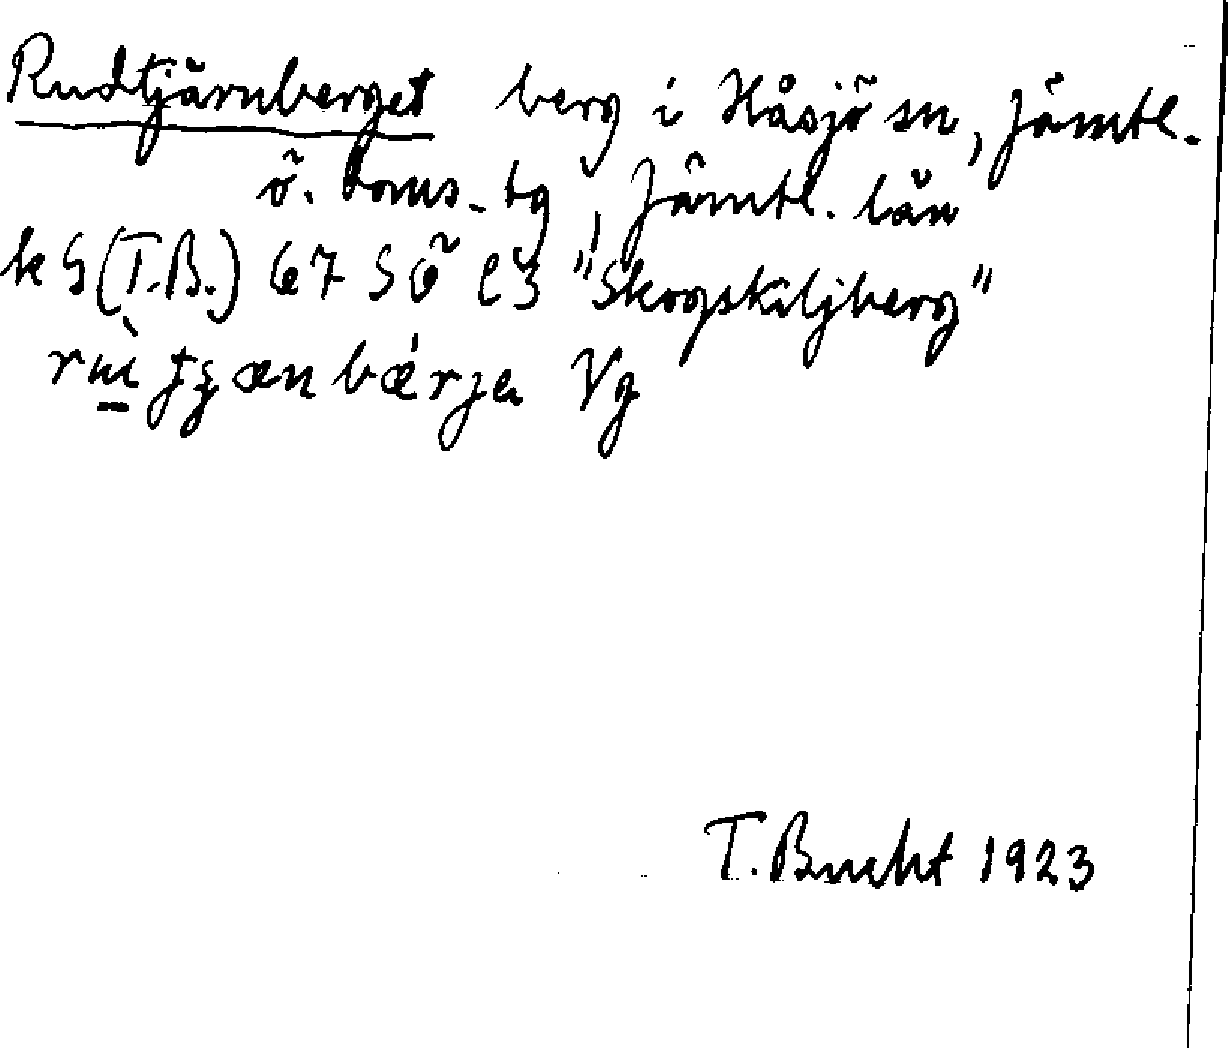 Rudtjärnberget berg i Håsjö sn, Jämtl.
ö. doms. tg, Jämtl. län
k G (T.B.) 67 SÖ e3 "Skogskiljberg"
bærjɐ Vg
T. Bucht 1923